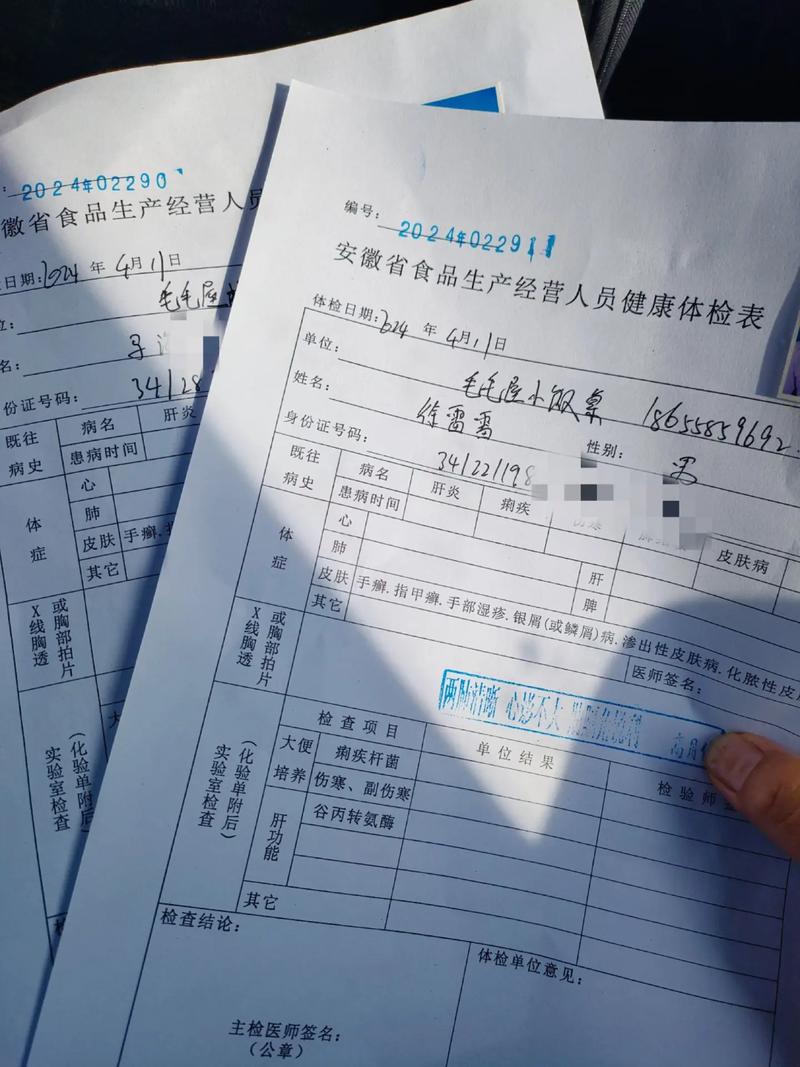 2024年02290
安徽省食品生产经营人员
检日期:2024 年 4月11日
毛毛屋
名:
份证号码: 34128
既往病史
病名
肝炎
患病时间
体症
心
肺
皮肤
手癣.指
其它
X线胸透
或胸部拍片
实验室检查
(化验单附后)
编号: 2024年02291
安徽省食品生产经营人员健康体检表
体检日期:2024 年 4月11日
单位: 毛毛屋小饭桌 18655859692
姓名: 徐雷雷 性别: 男
身份证号码: 341221198
既往病史
病名 肝炎 痢疾 伤寒 皮肤病
患病时间
体症
心 肝
肺 脾
皮肤 手癣.指甲癣.手部湿疹.银屑(或鳞屑)病.渗出性皮肤病.化脓性皮
其它
医师签名:
X线胸透
或胸部拍片
两肺清晰 心影不大
实验室检查
(化验单附后)
检查项目 单位结果 检验师
大便培养
痢疾杆菌
伤寒、副伤寒
肝功能
谷丙转氨酶
其它
检查结论:
体检单位意见:
主检医师签名:
(公章)